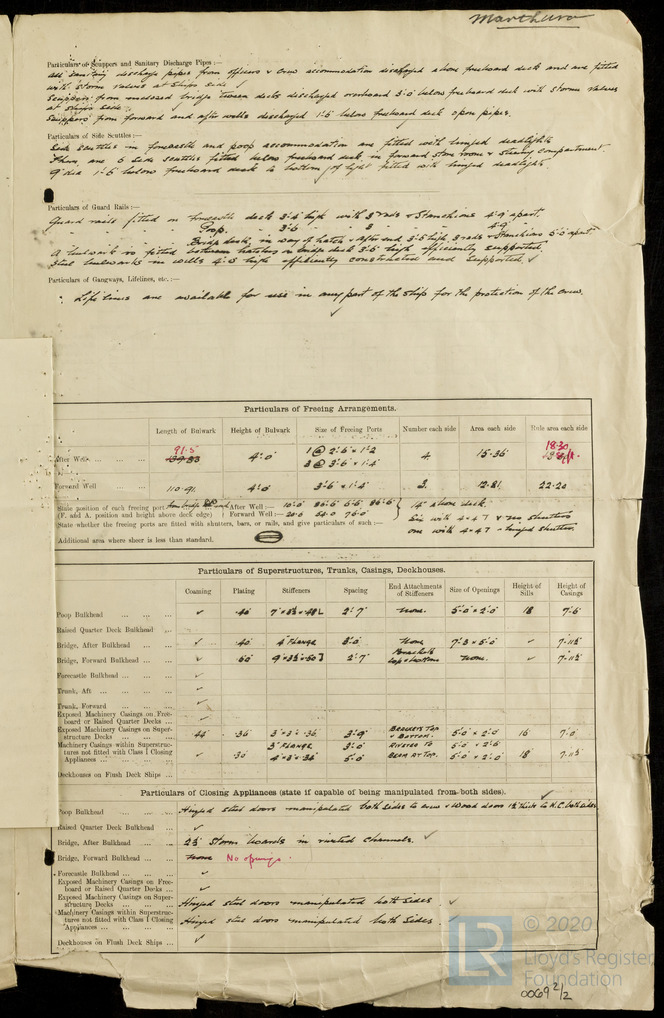 Marthara
Particulars of Scuppers and Sanitary Discharge Pipes :—
All sanitary discharge pipes from officers & crew accommodation discharged above freeboard deck and are fitted
with storm valves at ships side ✓
Scuppers from enclosed bridge tween decks discharged overboard 3'0 below freeboard deck with storm valves
at ships side.
Scuppers from forward and after wells discharged 1'6 below freeboard deck open pipes.
Particulars of Side Scuttles :—
Side scuttles in forecastle and poop accommodation are fitted with hinged deadlights
There are 6 side scuttles fitted below freeboard deck in forward store room & steering compartment
9" dia 1'6 below freeboard deck to bottom of light fitted with hinged deadlights.
Particulars of Guard Rails :—
Guard rails fitted on forecastle deck 3'6 high with 3 rods & Stanchions 4'9 apart.
" " " Poop. " 3'6 " 3 " " 4'9 "
" " " Bridge deck, in way of hatch & after end 3'6 high 3 rods & Stanchions 5'0 apart
A bulwark is fitted between hatches on bridge deck 3'6 high efficiently supported
Steel bulwarks in wells 4'0 high efficiently constructed and supported ✓
Particulars of Gangways, Lifelines, etc. :—
Life lines are available for use in any part of the ship for the protection of the crew.
✓
Particulars of Freeing Arrangements.
Length of Bulwark Height of Bulwark Size of Freeing Ports Number each side Area each side Rule area each side
After Well 91.5 4'.0" 1 @ 2'.6" x 1'.2 4 15.36 18.30
3 @ 3'.6 x 1'.4"
Forward Well 110.91 4'.0 3'.6 x 1'.4" 3. 12.81 22.20
State position of each freeing port
(F. and A. position and height above deck edge)
After Well :—
Forward Well :— 54.0 76.0
14" above deck.
State whether the freeing ports are fitted with shutters, bars, or rails, and give particulars of such :—
Six with & no shutters
one with hinged shutter.
Additional area where sheer is less than standard.
Particulars of Superstructures, Trunks, Casings, Deckhouses.
Coaming Plating Stiffeners Spacing End Attachments of Stiffeners Size of Openings Height of Sills Height of Casings
Poop Bulkhead ✓ .40 2'.7" None. 5'.0" x 2'.0" 18 7'.6
Raised Quarter Deck Bulkhead
Bridge, After Bulkhead ✓ .40 4" FLANGE 3'.0" None 7'.3 x 5'.0" ✓ 7'.11½
Bridge, Forward Bulkhead ✓ .50 9" x 3½ x .50 2'.7 Brackets top & bottom None. ✓ 7'.11½
Forecastle Bulkhead ✓
Trunk, Aft ✓
Trunk, Forward ✓
Exposed Machinery Casings on Freeboard or Raised Quarter Decks ✓
Exposed Machinery Casings on Superstructure Decks .44 .36 3" x 3" x .36 3'.9" BRACKETS TOP & BOTTOM. 5'.0 x 2'.0 16 7'.0
Machinery Casings within Superstructures not fitted with Class I Closing Appliances ✓ .30 3" FLANGE 3'.0 RIVETED TO 5'.0 x 2'.6
4" x 3" x .36 5'.0 BEAM AT TOP. 5'.0 x 2'.0 18 7'.11½
Deckhouses on Flush Deck Ships
Particulars of Closing Appliances (state if capable of being manipulated from both sides).
Poop Bulkhead Hinged steel doors manipulated both sides to crew & wood doors 1¾ thick to both sides
Raised Quarter Deck Bulkhead ✓
Bridge, After Bulkhead 2½ Storm boards in riveted channels. ✓
Bridge, Forward Bulkhead None No openings.
Forecastle Bulkhead ✓
Exposed Machinery Casings on Freeboard or Raised Quarter Decks ✓
Exposed Machinery Casings on Superstructure Decks Hinged steel doors manipulated both sides ✓
Machinery Casings within Superstructures not fitted with Class I Closing Appliances Hinged steel doors manipulated both sides ✓
Deckhouses on Flush Deck Ships ✓
© 2020
LR
Lloyd's Register
Foundation
0069 2/2